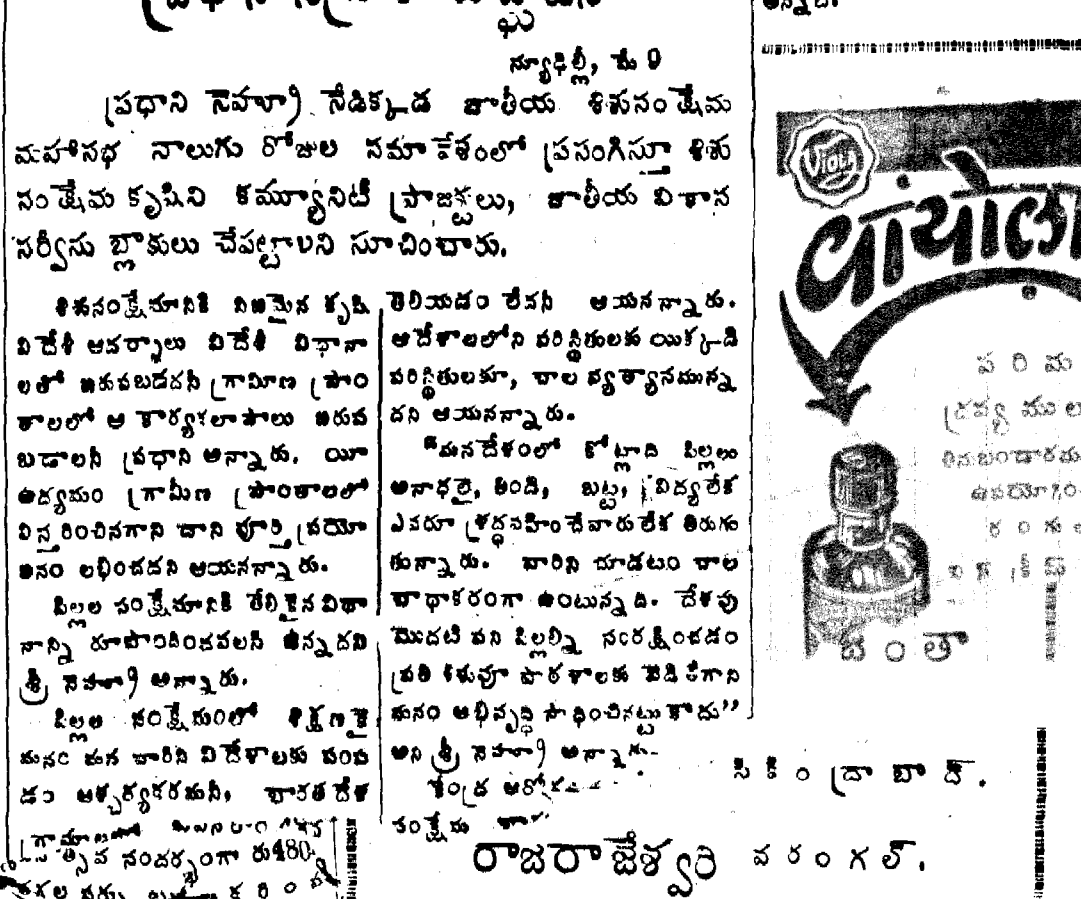 న్యూఢిల్లీ, మే 9
ప్రధాని నెహ్రూ నేడిక్కడ జాతీయ శిశుసంక్షేమ
మహాసభ నాలుగు రోజుల సమావేశంలో ప్రసంగిస్తూ శిశు
సంక్షేమ కృషిని కమ్యూనిటీ ప్రాజక్టులు, జాతీయ వికాస
సర్వీసు బ్లాకులు చేపట్టాలని సూచించారు.
శిశుసంక్షేమానికి నిజమైన కృషి
విదేశీ ఆదర్శాలు విదేశీ విధానా
లతో జరుపబడదనీ గ్రామీణ ప్రాం
తాలలో ఆ కార్యకలాపాలు జరుప
బడాలనీ ప్రధాని అన్నారు. యీ
ఉద్యమం గ్రామీణ ప్రాంతాలలో
విస్తరించినగాని దాని పూర్తి ప్రయో
జనం లభించదని ఆయనన్నారు.
పిల్లల సంక్షేమానికి తేలికైన విధా
నాన్ని రూపొందించవలసి ఉన్నదని
శ్రీ నెహ్రూ అన్నారు.
పిల్లల సంక్షేమంలో శిక్షణకై
మనం మన వారిని విదేశాలకు పంప
డం ఆశ్చర్యకరమనీ, భారతదేశ
తెలియడం లేదనీ ఆయనన్నారు.
ఆదేశాలలోని పరిస్థితులకు యిక్కడి
పరిస్థితులకూ, చాల వ్యత్యాసమున్న
దని ఆయనన్నారు.
"మనదేశంలో కోట్లాది పిల్లలు
అనాధలై, తిండి, బట్ట, విద్యలేక
ఎవరూ శ్రద్ధవహించేవారులేక తిరుగు
తున్నారు. వారిని చూడటం చాల
బాధాకరంగా ఉంటున్నది. దేశపు
మొదటి పని పిల్లల్ని సంరక్షించడం
ప్రతి శిశువూ పాఠశాలకు వెడితేగాని
మనం అభివృద్ధి సాధించినట్టు కాదు"
అని శ్రీ నెహ్రూ అన్నారు.
కేంద్ర
సంక్షేమ
సందర్భంగా రు480
VIOLA
वायोला
పరిమ
ద్రవ్యములు
ఉపయోగిం
రంగు
సికింద్రాబాద్.
రాజరాజేశ్వరి వరంగల్.